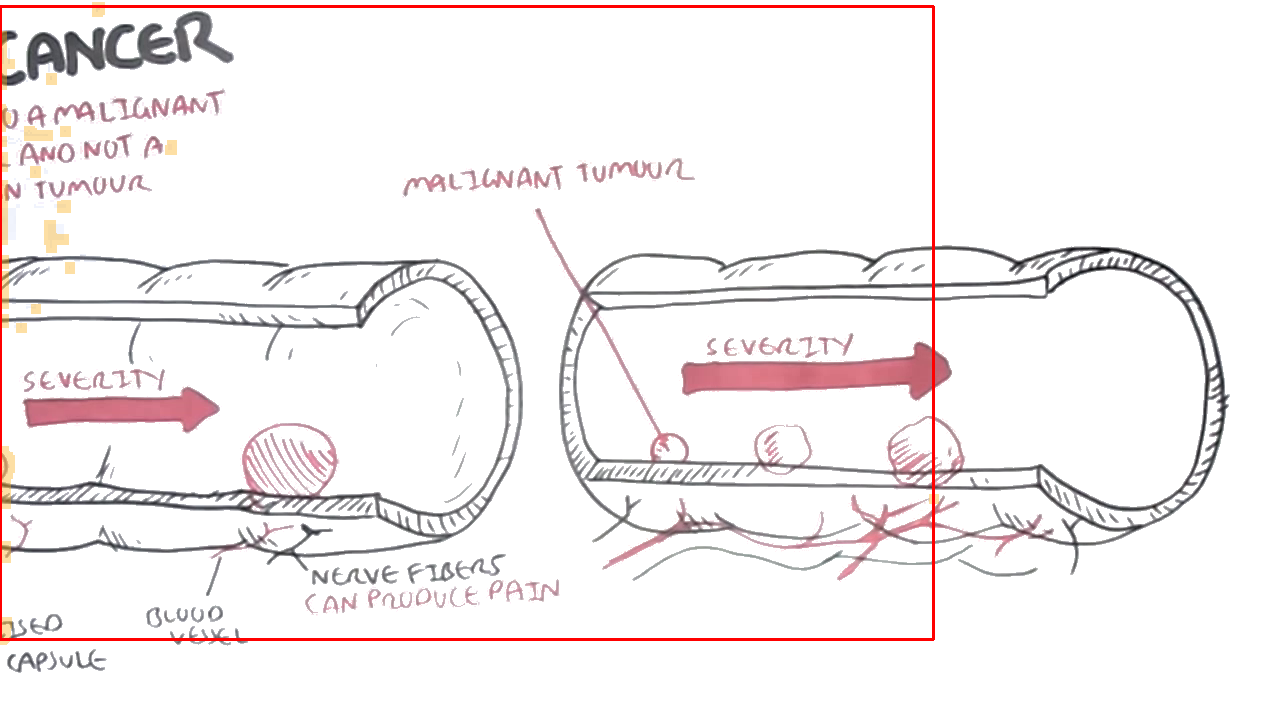 CANCER
A MALIGNANT
AND NOT A
TUMOUR
MALIGNANT TUMOUR
SEVERITY
SEVERITY
NERVE FIBERS
CAN PRODUCE PAIN
BLOOD
VESSEL
CAPSULE